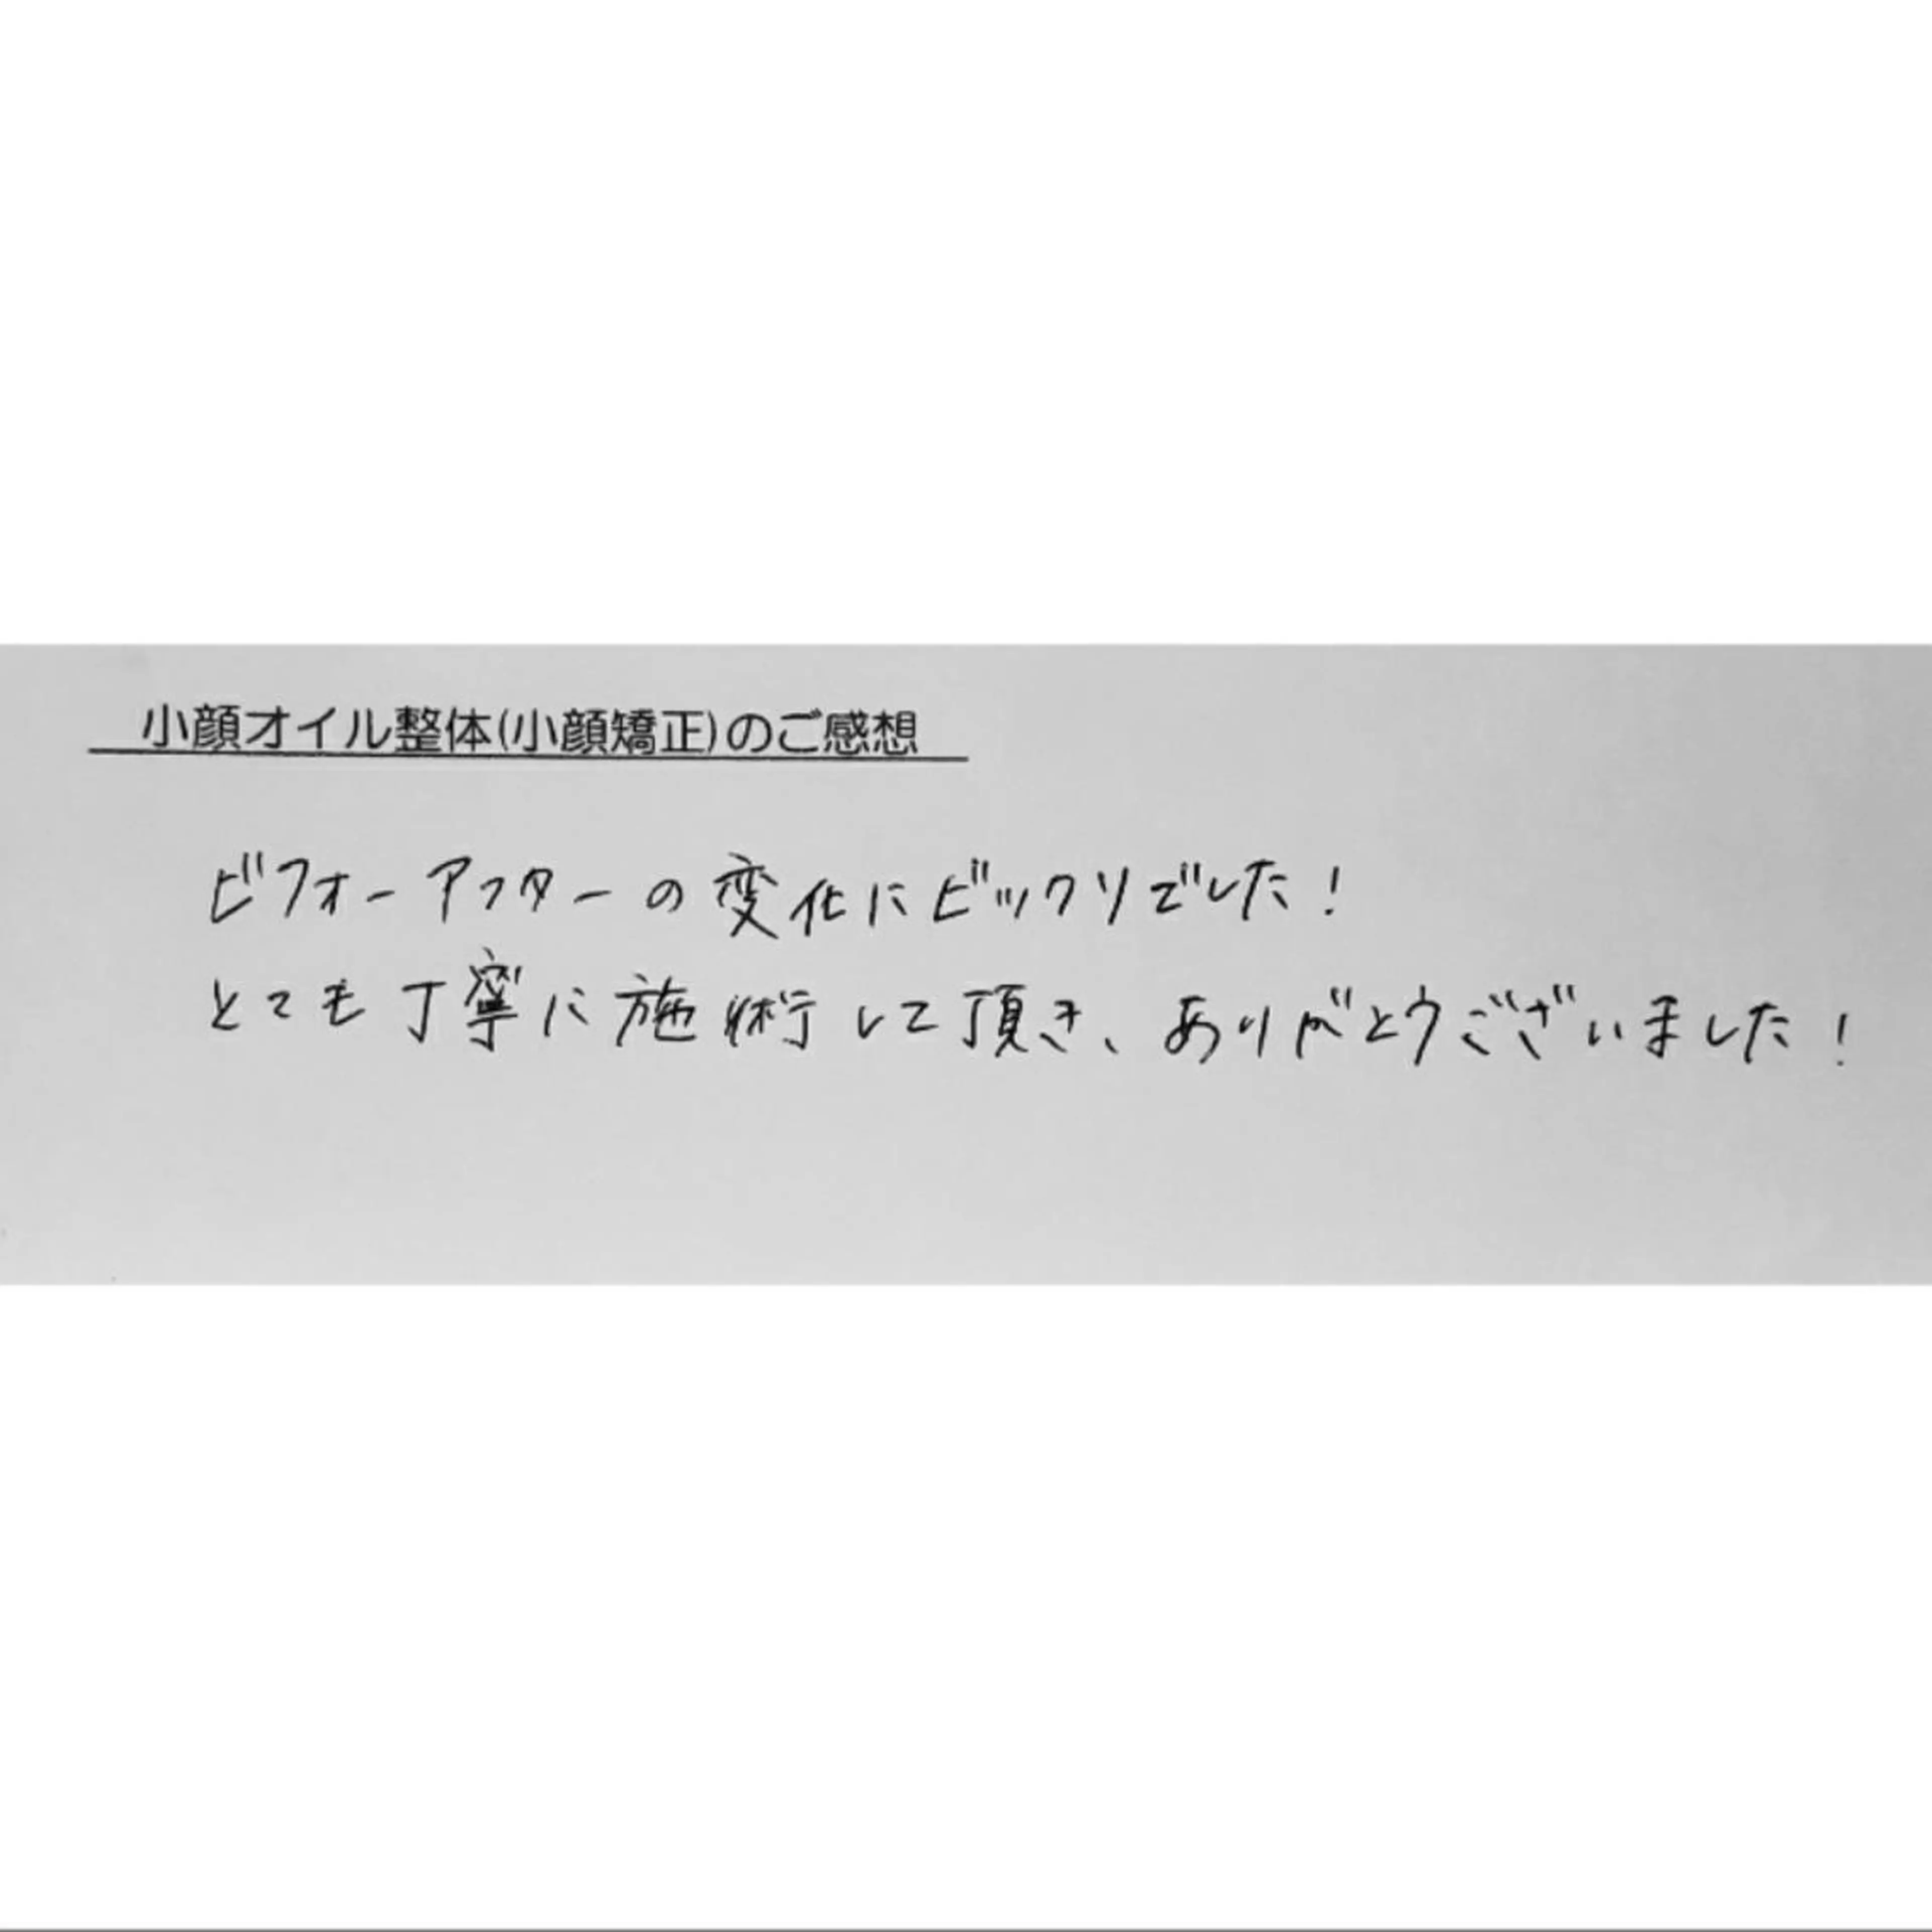 小顔オイル整体(小顔矯正)のご感想
ビフォーアフターの変化にビックリでした!
とても丁寧に施術して頂き、ありがとうございました!